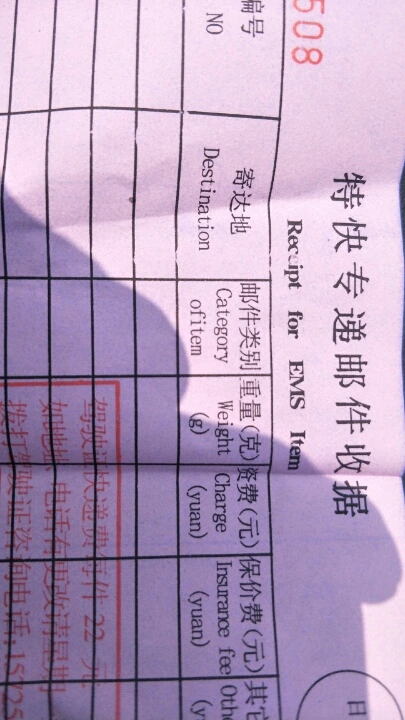 508
特快专递邮件收据
Receipt for EMS Item
编号
NO
寄达地
Destination
邮件类别
Category
ofitem
重量(克)
Weight
(g)
资费(元)
Charge
(yuan)
保价费(元)
Insurance fee
(yuan)
其它
Othe
(y
日
驾驶证快递费每件 22 元
如地址、电话有更改请星期
驾驶证咨询电话:15725